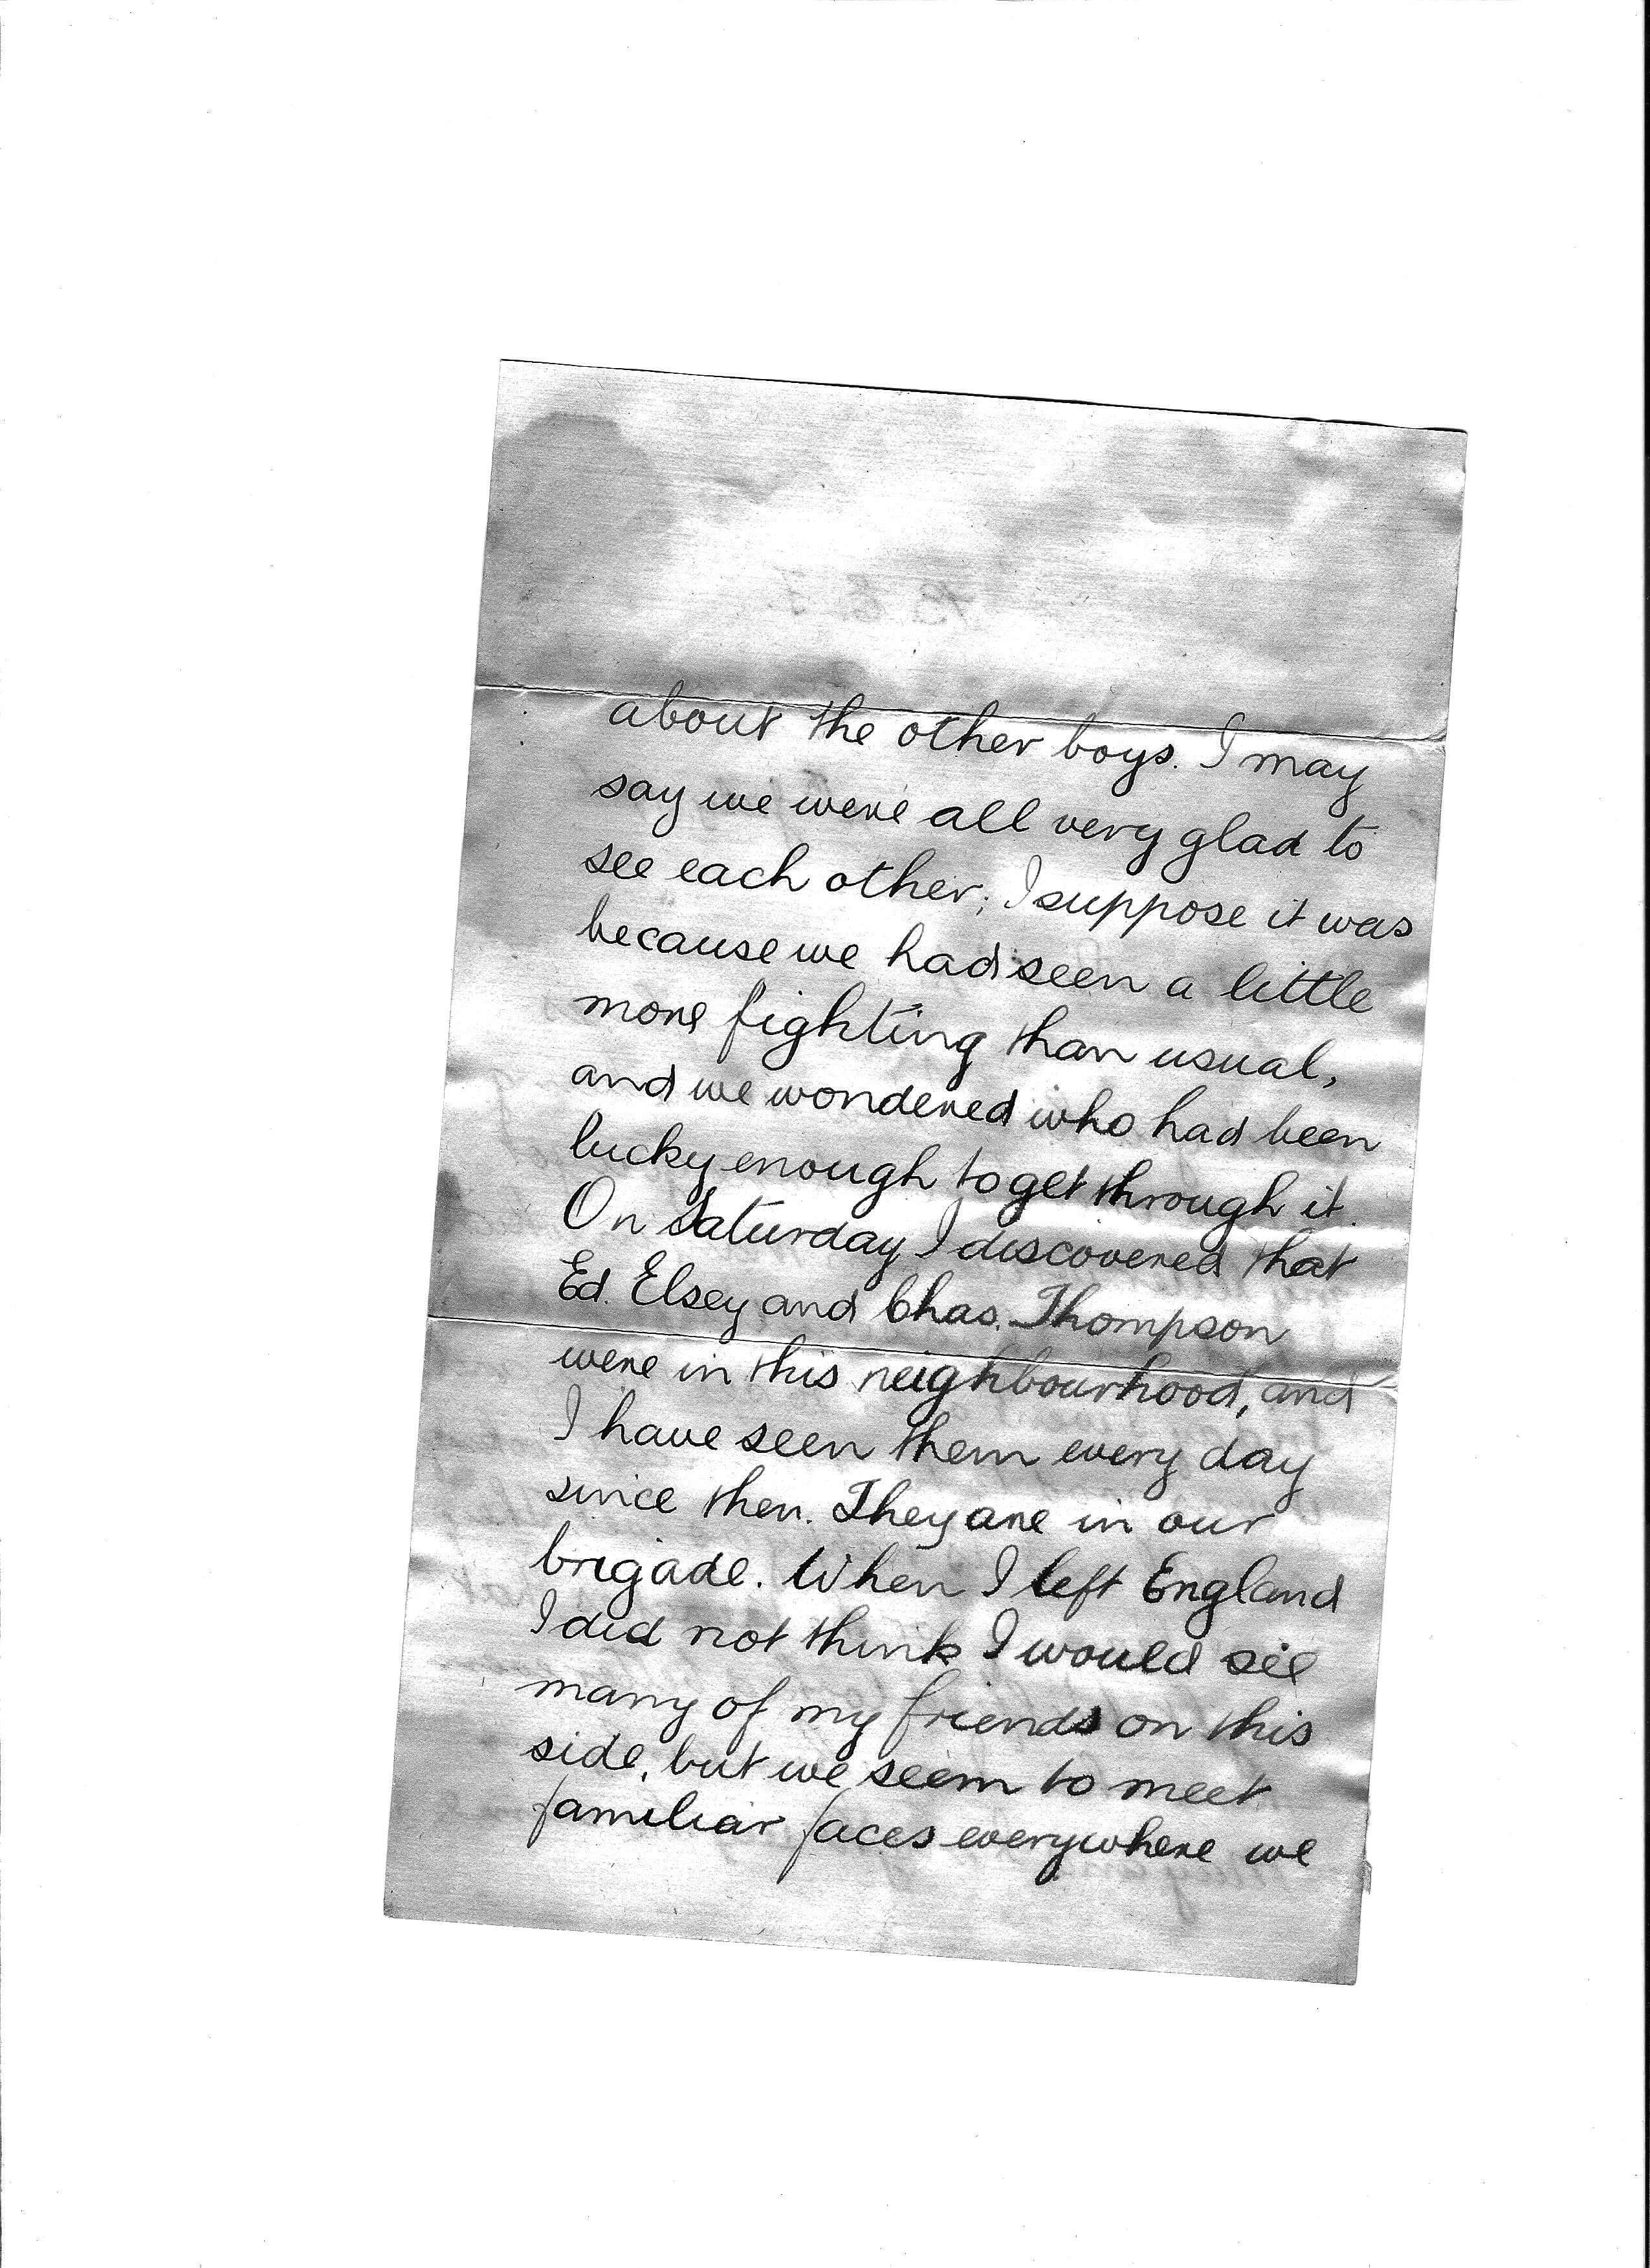 about the other boys. I may
say we were all very glad to
see each other; I suppose it was
because we had seen a little
more fighting than usual,
and we wondered who had been
lucky enough to get through it.
On Saturday I discovered that
Ed. Elsey and Chas. Thompson
were in this neighbourhood, and
I have seen them every day
since then. They are in our
brigade. When I left England
I did not think I would see
many of my friends on this
side, but we seem to meet
familiar faces everywhere we